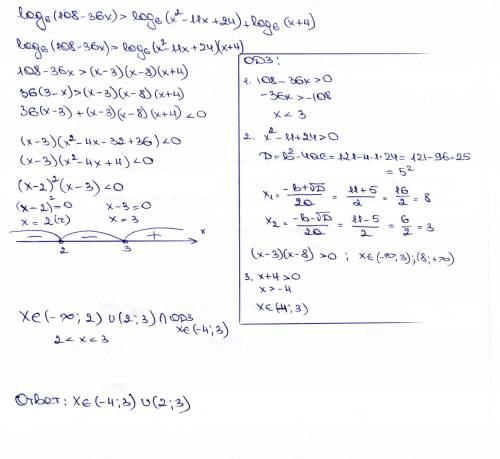 log₆(108-36x) > log₆(x²-11x+24) + log₆(x+4)
log₆(108-36x) > log₆(x²-11x+24)(x+4)
108-36x > (x-3)(x-8)(x+4)
36(3-x) > (x-3)(x-8)(x+4)
36(x-3) + (x-3)(x-8)(x+4) < 0
(x-3)(x²-4x-32+36) < 0
(x-3)(x²-4x+4) < 0
(x-2)²(x-3) < 0
(x-2)²=0 x-3=0
x=2(2) x=3
- - + x
2 3
x∈(-∞; 2) ∪ (2; 3) ∩ ОДЗ
x∈(-4; 3)
2 < x < 3
Ответ: x∈(-4; 3) ∪ (2; 3)
ОДЗ:
1. 108-36x > 0
-36x > -108
x < 3
2. x²-11+24 > 0
D = b²-4ac = 121-4·1·24 = 121-96 = 25
= 5²
x₁ = (-b+√D)/2a = (11+5)/2 = 16/2 = 8
x₂ = (-b-√D)/2a = (11-5)/2 = 6/2 = 3
(x-3)(x-8) > 0 ; x∈(-∞; 3); (8; +∞)
3. x+4 > 0
x > -4
x∈(-4; 3)